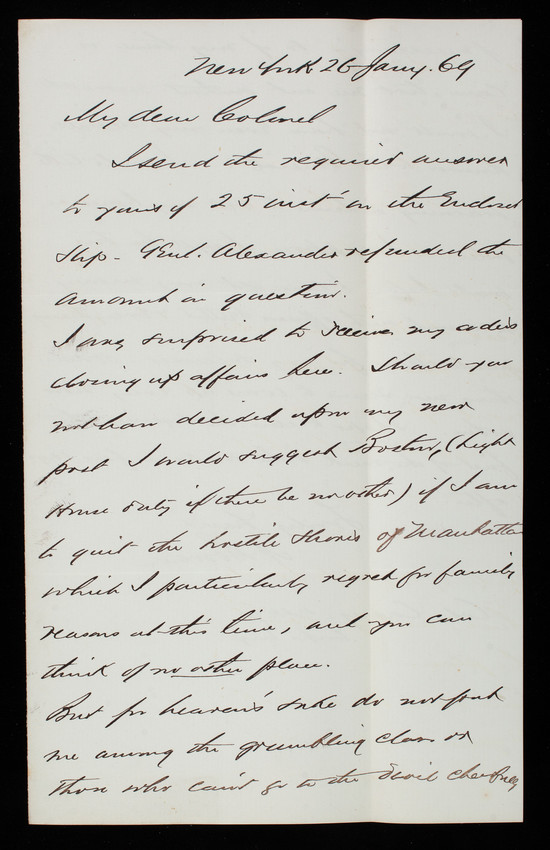 New York 26 Jany. 69
My dear Colonel
I send the required answer
to yours of 25 inst on the Enclosed
slip - Genl. Alexander refunded the
amount in question.
I am surprised to receive my orders
closing up affairs here. Should you
not have decided upon my new
post I would suggest Boston, (Light
House duty if there be no other) if I am
to quit the hostile shores of Manhattan
which I particularly regret for family
reasons at this time, and you can
think of no other place.
But for heaven's sake do not put
me among the grumbling class or
those who can't go to the Devil cheerfully